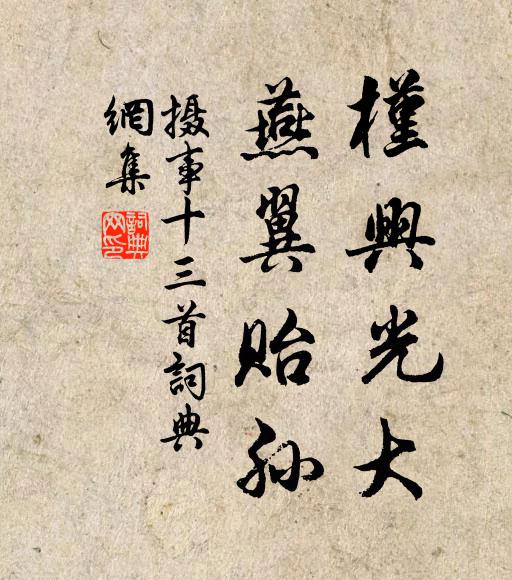 槿興光大
燕翼貽孙
摄事十三首詞典
網集
詞典
网印